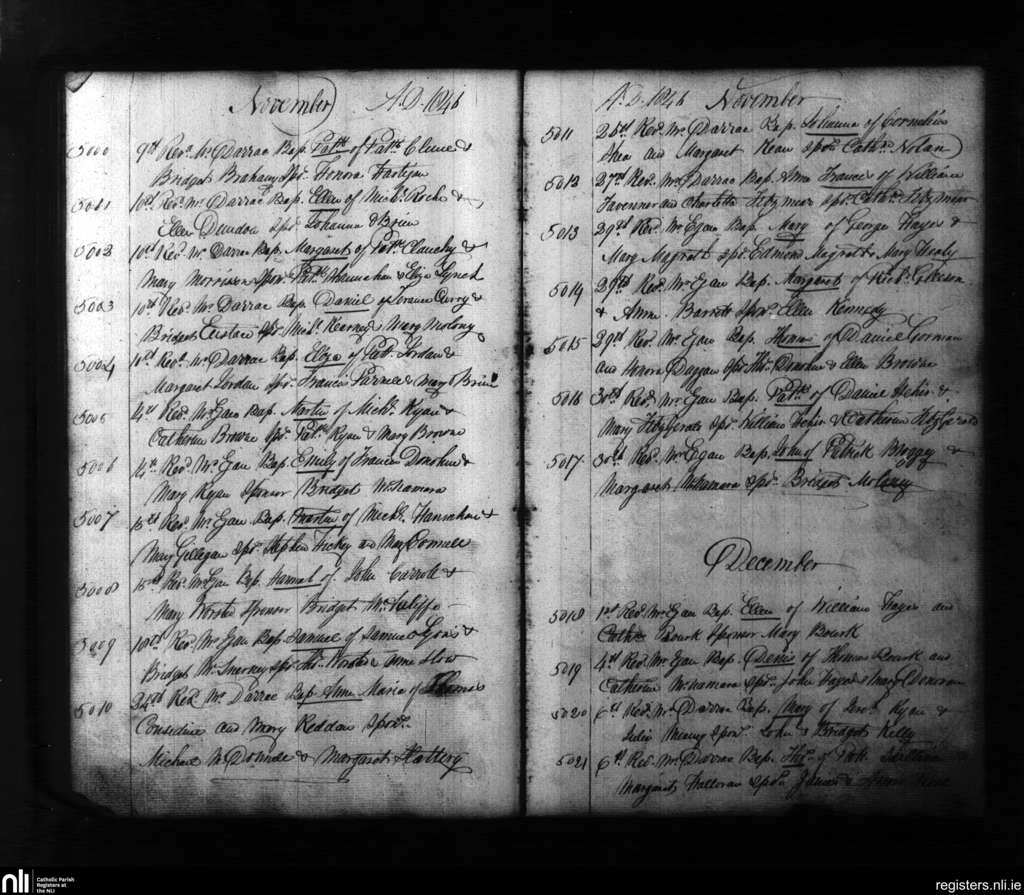 November A.D. 1846
5000 9th Revd. Mr. Darrac Bap. Patk. of Patk. Clune &
Bridget Sprs. Honora Hartigan
5001 10th Revd. Mr. Darrac Bap. Ellen of Michl. Roche &
Ellen Dundon Sprs. Johanna OBrien
5002 10th Revd. Mr. Darrac Bap. Margaret of Patk. Clanchy &
Mary Morrison Sprs. Patk. & Eliza Lynch
5003 10th Revd. Mr. Darrac Bap. Daniel of Terance Curry &
Bridget Eustace Sprs. Michl. Kearney & Mary Molony
5004 10th Revd. Mr. Darrac Bap. Eliza of Patk. Jordan &
Margaret Jordan Sprs. Francis & Mary OBrien
5005 Revd. Mr. Egan Bap. Martin of Michl. Ryan &
Catherine Browne Sprs. Patk. Ryan & Mary Browne
5006 Revd. Mr. Egan Bap. Emily of Francis Donohue &
Mary Ryan Sponsor Bridget McNamara
5007 15th Revd. Mr. Egan Bap. Martin of Michl. Hanrahan &
Mary Gillegan Sprs. Stephen Hickey and Mary
5008 15th Revd. Mr. Egan Bap. Hannah of John Carroll &
Mary Worster Sponsor Bridget McAuliffe
5009 Revd. Mr. Egan Bap. Samuel of Samuel Lyons &
Bridget McInerney Sprs. Thos. Worster Anne
5010 24th Revd. Mr. Darrac Bap. Anne Maria of Thomas
Considine and Mary Reddan Sprs.
Michael & Margaret Slattery
A.D. 1846 November
5011 25th Revd. Mr. Darrac Bap. Johanna of Cornelius
Shea and Margaret Kean Sprs. Cathe. Nolan
5012 27th Revd. Mr. Darrac Bap. Anne Frances of William
Taverner and Charlotte Fitzmaur Sprs. Cathe. Fitzmaur
5013 29th Revd. Mr. Egan Bap. Mary of George Hayes &
Mary Magrath Sprs. Edmond Magrath & Mary Healy
5014 29th Revd. Mr. Egan Bap. Margaret of Richd. Gleeson
& Anne Barrett Sprs. Ellen Kennedy
5015 29th Revd. Mr. Egan Bap. Thomas of Daniel Gorman
and Honora Duggan Sprs. Thos. & Ellen Browne
5016 30th Revd. Mr. Egan Bap. Patk. of Daniel Usher &
Mary Fitzgerald Sprs. William Usher & Catherine Fitzgerald
5017 30th Revd. Mr. Egan Bap. John of Patrick &
Margaret McNamara Sprs. Bridget Molony
December
5018 1st Revd. Mr. Egan Bap. Ellen of William Hayes and
Cathe. Bourk Sponsor Mary Bourk
5019 4th Revd. Mr. Egan Bap. Denis of Thomas Bourk and
Catherine McNamara Sprs. John Hayes & Mary Donovan
5020 6th Revd. Mr. Darrac Bap. Mary of Ryan &
Julia Sprs. John & Bridget Kelly
5021 6th Revd. Mr. Darrac Bap. Thos. of Patk.
Margaret Halloran Sprs. James &
nli Catholic Parish
Registers at
the NLI
registers.nli.ie